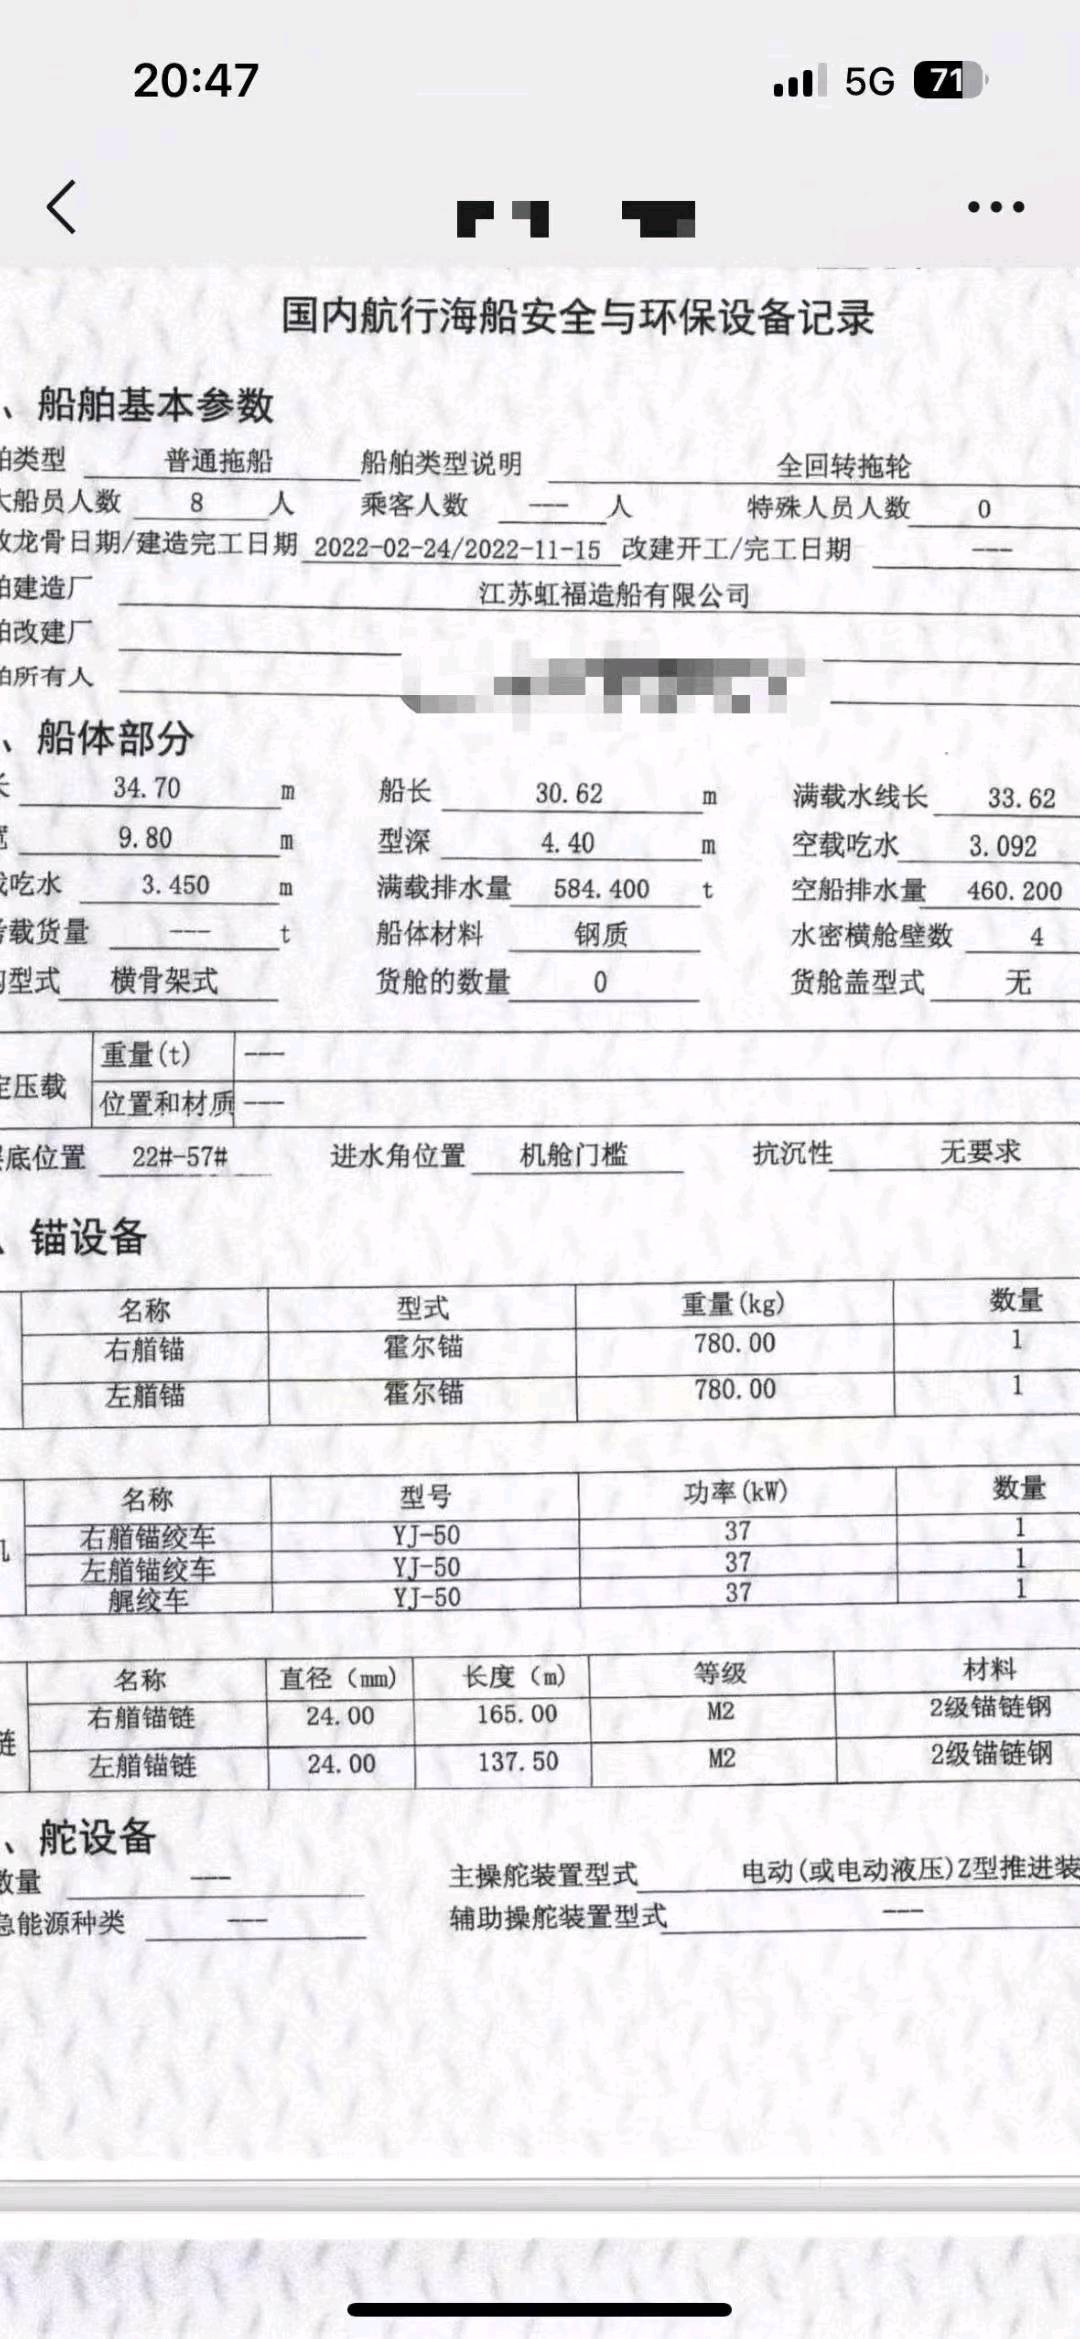 20:47 5G 71
国内航行海船安全与环保设备记录
、船舶基本参数
舶类型 普通拖船 船舶类型说明 全回转拖轮
大船员人数 8 人 乘客人数 --- 人 特殊人员人数 0
放龙骨日期/建造完工日期 2022-02-24/2022-11-15 改建开工/完工日期 ---
舶建造厂 江苏虹福造船有限公司
舶改建厂
舶所有人
、船体部分
长 34.70 m 船长 30.62 m 满载水线长 33.62
宽 9.80 m 型深 4.40 m 空载吃水 3.092
载吃水 3.450 m 满载排水量 584.400 t 空船排水量 460.200
载货量 --- t 船体材料 钢质 水密横舱壁数 4
型式 横骨架式 货舱的数量 0 货舱盖型式 无
定压载 重量(t) ---
位置和材质 ---
底位置 22#-57# 进水角位置 机舱门槛 抗沉性 无要求
、锚设备
名称 型式 重量(kg) 数量
右艏锚 霍尔锚 780.00 1
左艏锚 霍尔锚 780.00 1
名称 型号 功率(kW) 数量
右艏锚绞车 YJ-50 37 1
左艏锚绞车 YJ-50 37 1
艉绞车 YJ-50 37 1
名称 直径（mm) 长度（m) 等级 材料
右艏锚链 24.00 165.00 M2 2级锚链钢
链 左艏锚链 24.00 137.50 M2 2级锚链钢
、舵设备
数量 --- 主操舵装置型式 电动(或电动液压)Z型推进装
急能源种类 --- 辅助操舵装置型式 ---